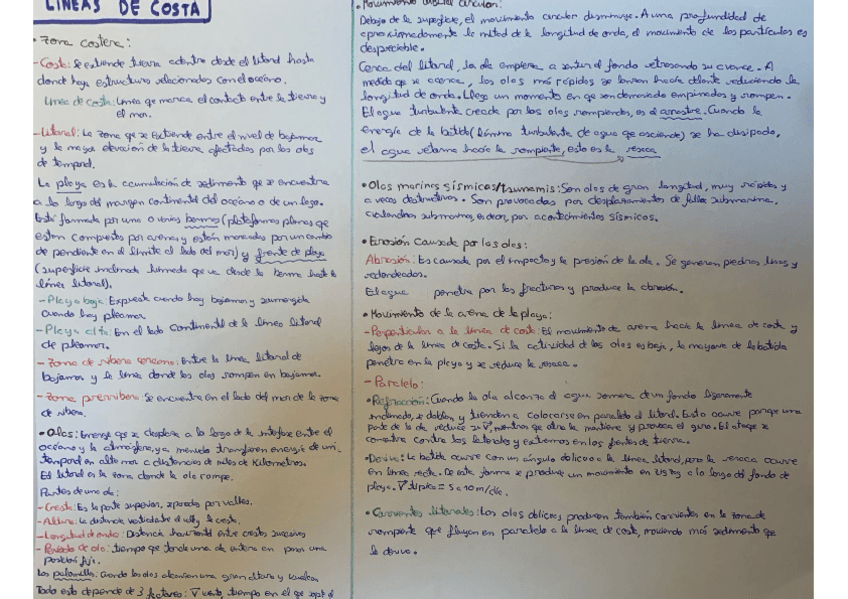 LÍNEAS DE COSTA
• Zona costera:
- Costa: Se extiende tierra adentro desde el litoral hasta
donde haya estructuras relacionadas con el océano.
Línea de costa: Línea que marca el contacto entre la tierra y
el mar.
- Litoral: La zona que se extiende entre el nivel de bajamar
y la mayor elevación de la tierra afectados por las olas
de temporal.
La playa es la acumulación de sedimento que se encuentra
a lo largo del margen continental del océano o de un lago.
Está formada por una o varias bermas (plataformas planas que
están compuestas por arena y están marcadas por un cambio
de pendiente en el límite el lado del mar) y frente de playa
(superficie inclinada húmeda que va desde la berma hasta la
línea litoral).
- Playa baja: Expuesta cuando hay bajamar y sumergida
cuando hay pleamar.
- Playa alta: En el lado continental de la línea litoral
de pleamar.
- Zona de ribera cercana: Entre la línea litoral de
bajamar y la línea donde las olas rompen en bajamar.
- Zona prerribera: Se encuentra en el lado del mar de la zona
de ribera.
• Olas: Energía que se desplaza a lo largo de la interfase entre el
océano y la atmósfera, y a menudo transfieren energía de un
temporal en alta mar a distancias de miles de kilómetros.
El litoral es la zona donde la ola rompe.
Partes de una ola:
- Cresta: Es la parte superior, separada por valles.
- Altura: La distancia vertical de el valle y la cresta.
- Longitud de onda: Distancia horizontal entre crestas sucesivas
- Periodo de ola: tiempo que tarda una ola entera en pasar una
posición fija.
Las palomillas: Cuando las olas alcanzan una gran altura y
Todo esto depende de 3 factores: V viento, tiempo en el que sopla
• Movimiento orbital circular:
Debajo de la superficie, el movimiento circular disminuye. A una profundidad de
aproximadamente la mitad de la longitud de onda, el movimiento de las partículas es
despreciable.
Cerca del litoral, la ola empieza a sentir el fondo retrasando su avance. A
medida que se acerca, las olas más rápidas se lanzan hacia delante reduciendo la
longitud de onda. Llega un momento en que son demasiado empinadas y rompen.
El agua turbulenta creada por las olas rompiendo, es el arrastre. Cuando la
energía de la batida (lámina turbulenta de agua que asciende) se ha disipado,
el agua retorna hacia la rompiente, esto es la resaca
• Olas marinas sísmicas/tsunamis: Son olas de gran longitud, muy rápidas y
a veces destructivas. Son provocadas por desplazamientos de fallas submarinas,
submarinos, es decir, por acontecimientos sísmicos.
• Erosión causada por las olas:
Abrasión: Es causada por el impacto y la presión de la ola. Se generan piedras lisas y
redondeadas.
El agua penetra por las fracturas y produce la abrasión.
• Movimiento de la arena de la playa:
- Perpendicular a la línea de costa: El movimiento de arena hacia la línea de costa y
lejos de la línea de costa. Si la actividad de las olas es baja, la mayoría de la batida
penetra en la playa y se reduce la resaca.
- Paralelo:
• Refracción: Cuando la ola alcanza el agua somera de un fondo ligeramente
inclinado, se doblan y tienden a colocarse en paralelo al litoral. Esto ocurre porque una
parte de la ola reduce su V, mientras que otra la mantiene y provoca el giro. El ataque se
concentra contra los laterales y extremos en los frentes de tierra.
• Deriva: La batida ocurre con un ángulo oblicuo a la línea litoral, pero la resaca ocurre
en línea recta. De esta forma se produce un movimiento en zigzag a lo largo del fondo de
playa. V típica = 5 a 10 m/día.
• Corrientes litorales: Las olas oblicuas producen también corrientes en la zona de
rompiente que fluyen en paralelo a la línea de costa, moviendo más sedimento que
la deriva.